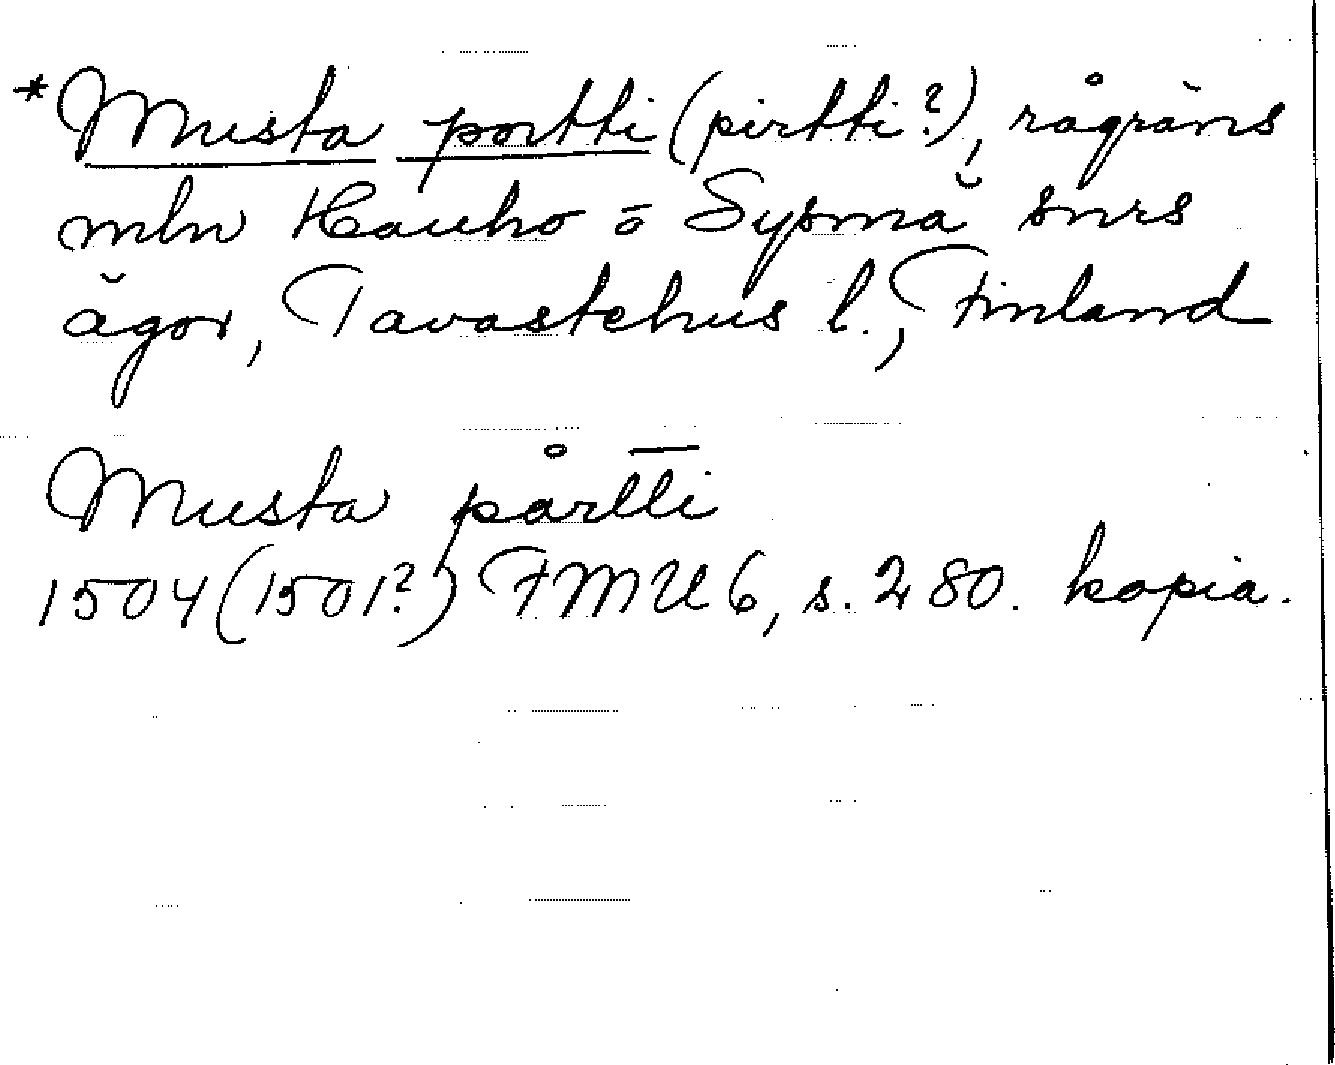 *Musta portti (pirtti?), rågräns
mln Hauho o Sysmä snrs
ägor, Tavastehus l., Finland
Musta pårtti
1504 (1501?) FMU 6, s. 280. kopia.